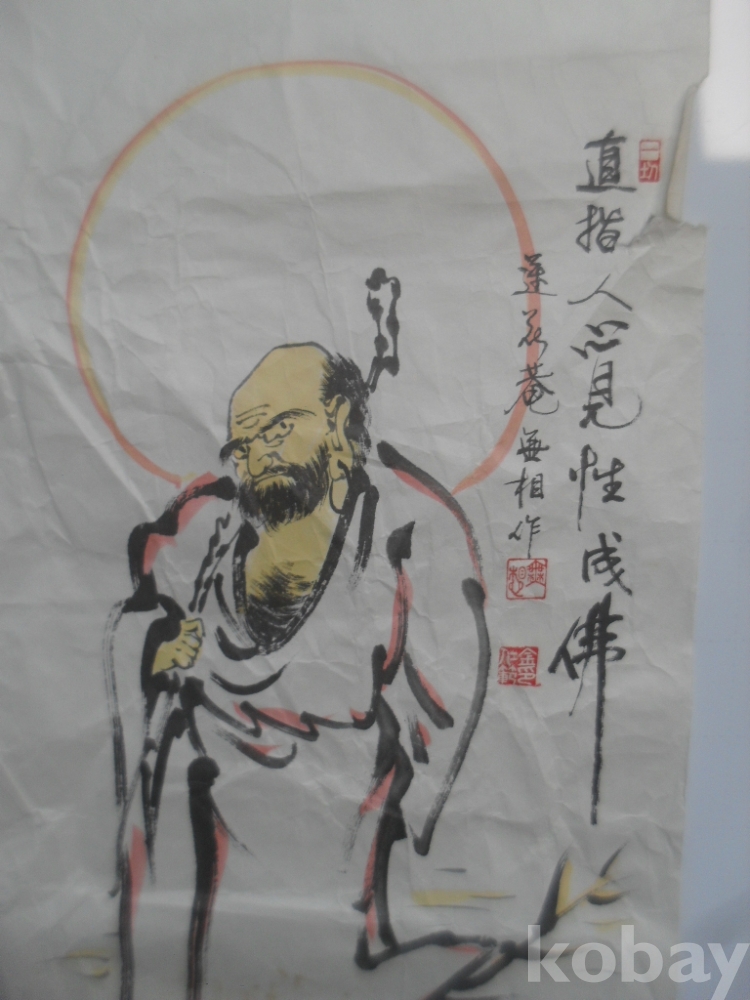 直指人心見性成佛
蓮花菴無相作
無相
kobay